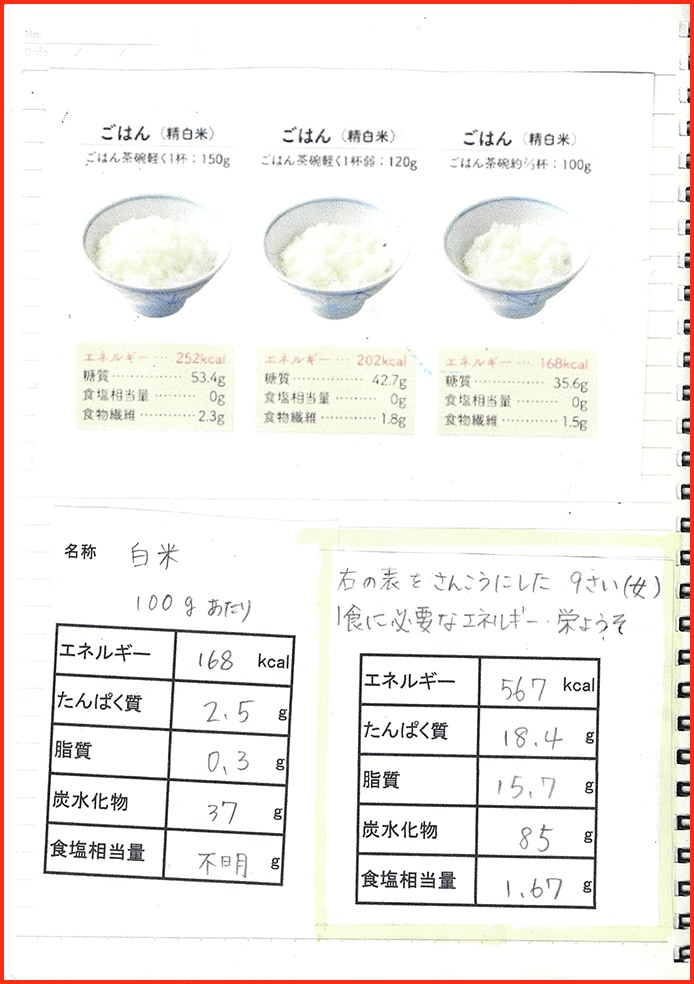 No.
Date
ごはん（精白米）
ごはん茶碗軽く1杯：150g
エネルギー … 252kcal
糖質 …………… 53.4g
食塩相当量 ……… 0g
食物繊維 ………… 2.3g
ごはん（精白米）
ごはん茶碗軽く1杯弱：120g
エネルギー … 202kcal
糖質 …………… 42.7g
食塩相当量 ……… 0g
食物繊維 ………… 1.8g
ごはん（精白米）
ごはん茶碗約2/3杯：100g
エネルギー … 168kcal
糖質 …………… 35.6g
食塩相当量 ……… 0g
食物繊維 ………… 1.5g
名称 白米
100gあたり
エネルギー 168 kcal
たんぱく質 2.5 g
脂質 0.3 g
炭水化物 37 g
食塩相当量 不明 g
右の表をさんこうにした 9さい(女)
1食に必要なエネルギー・栄ようそ
エネルギー 567 kcal
たんぱく質 18.4 g
脂質 15.7 g
炭水化物 85 g
食塩相当量 1.67 g